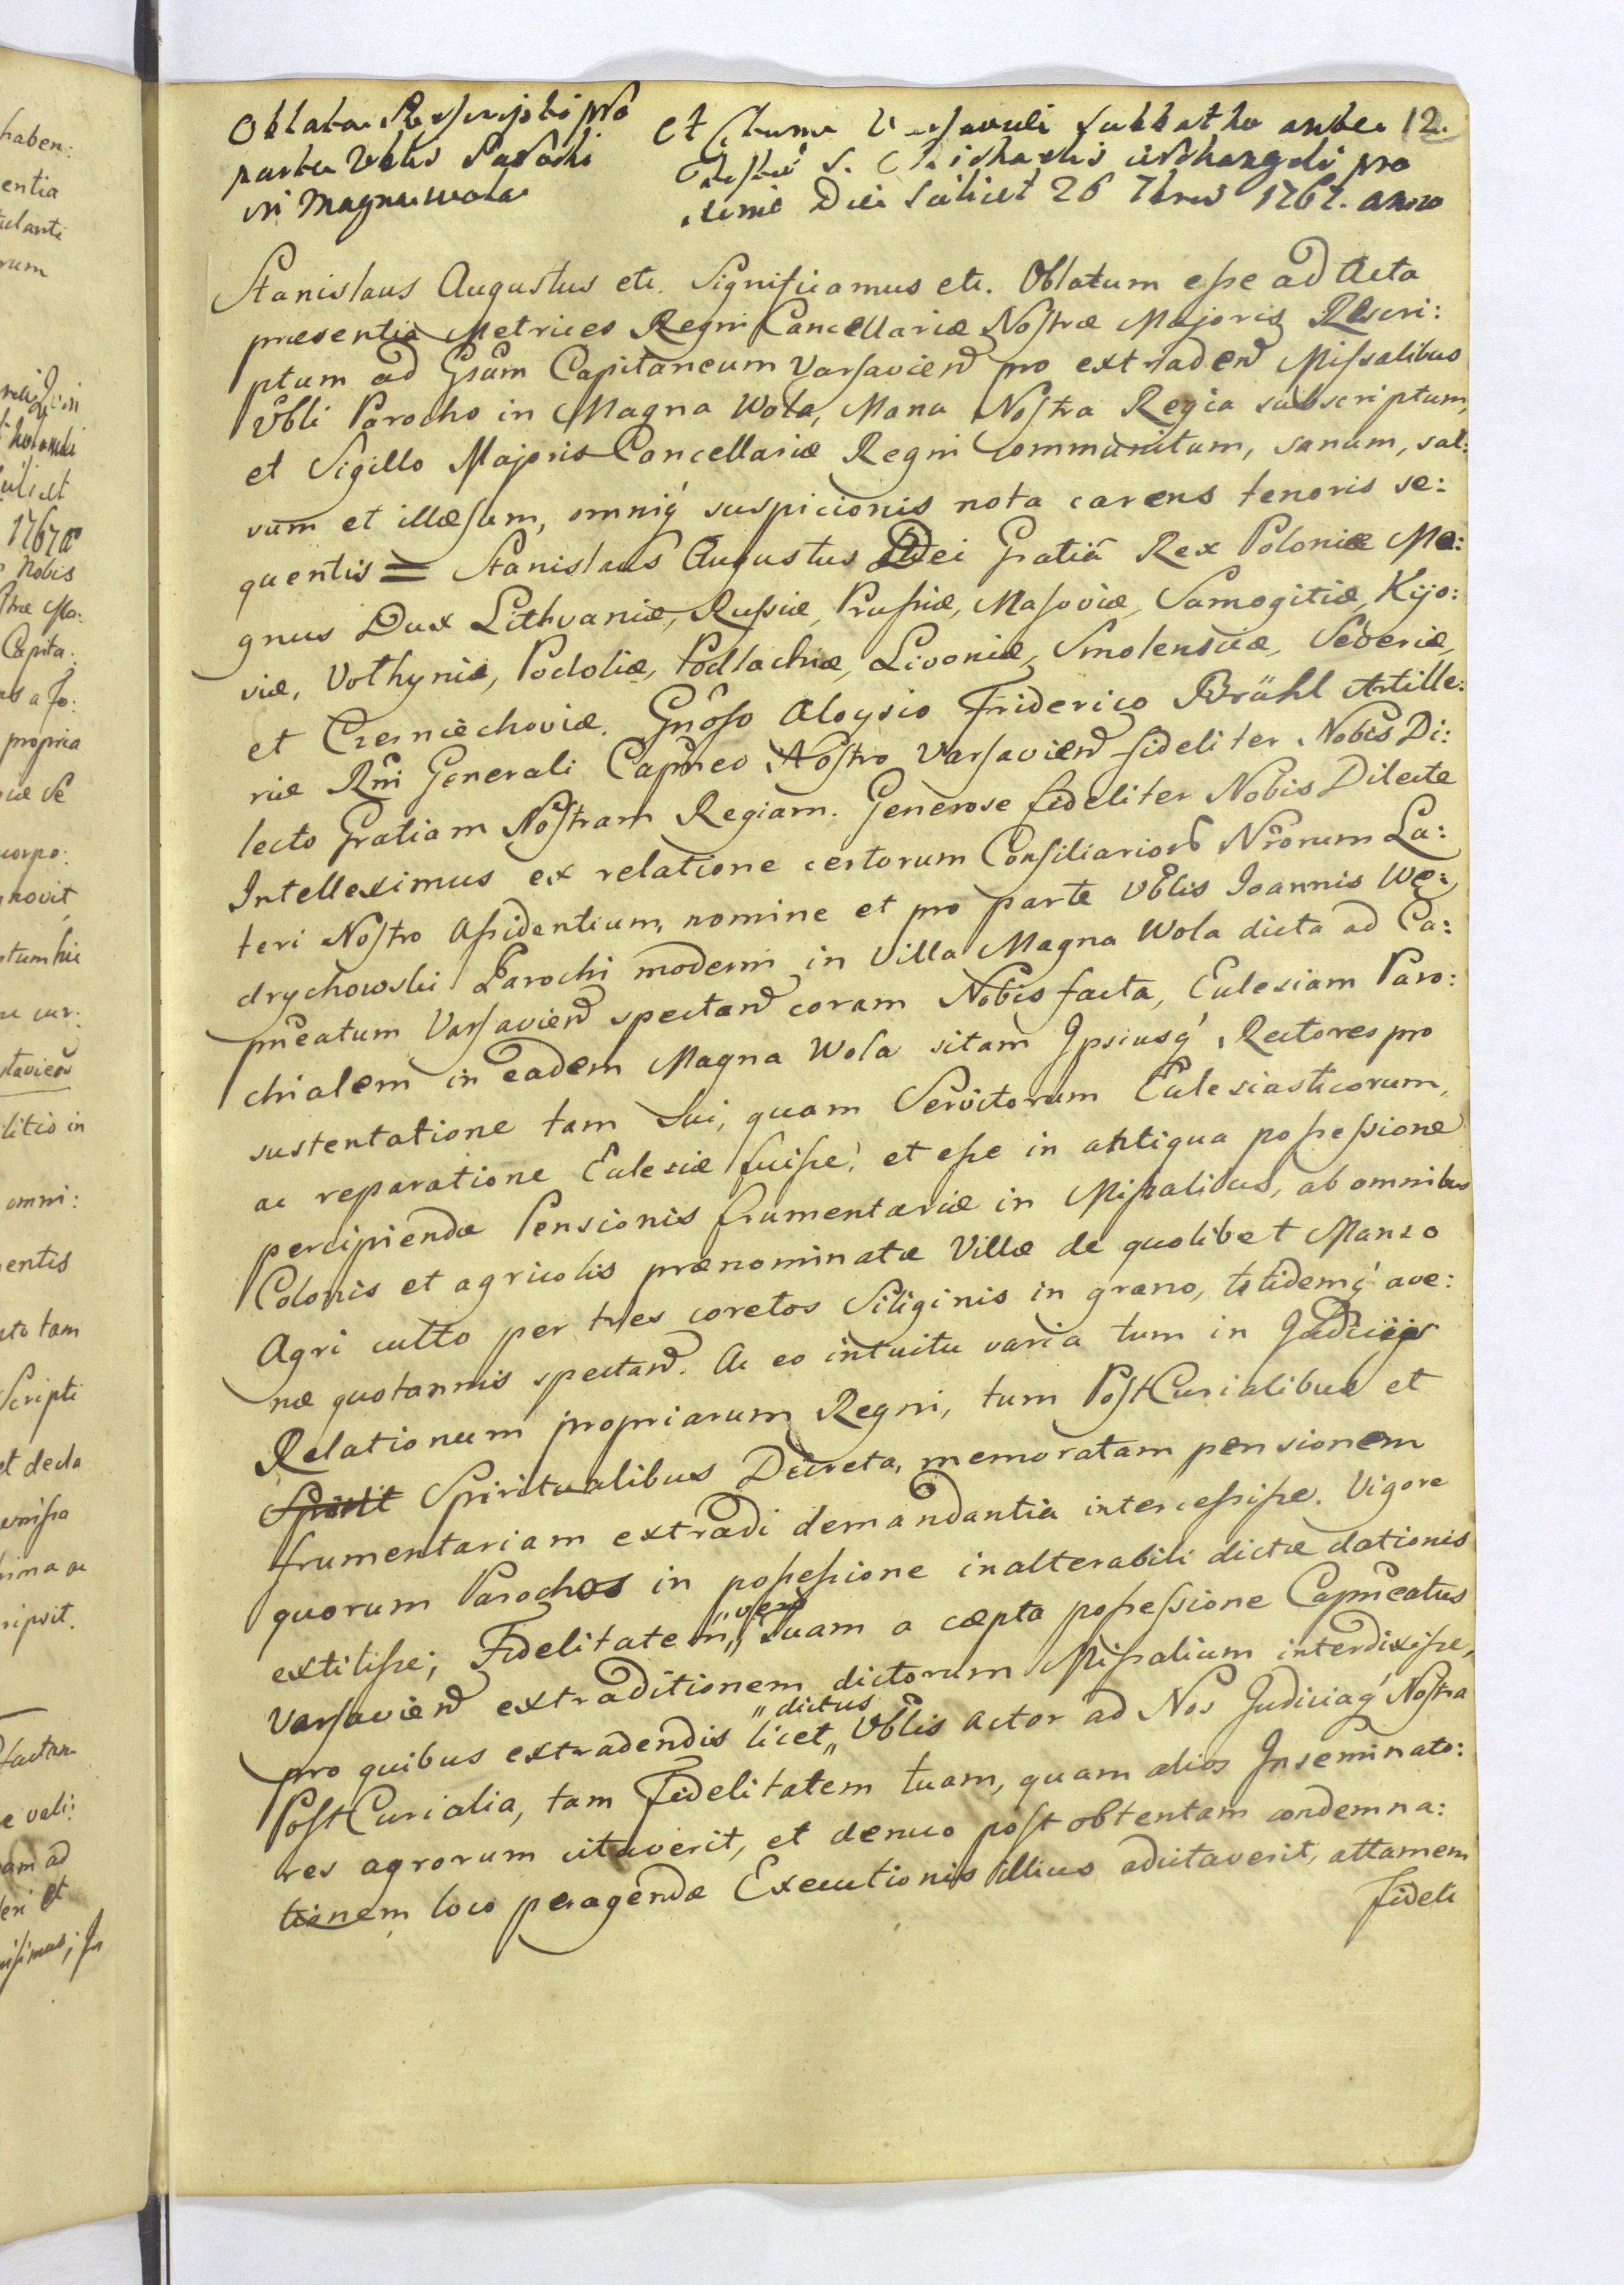 Oblata Rescripti pro
parte Vblis Parochi
in Magna Wola
12.
Actum Varsaviæ Sabbatho ante
Festum S. Michaelis Archangeli pro
xime Die scilicet 26 7bris 1767. anno
Stanislaus Augustus etc. Significamus etc. Oblatum esse ad Acta
præsentia Metrices Regni Cancellariæ Nostræ Majoris Rescri:
ptum ad Gsum Capitaneum Varsavien pro extraden Missalibus
Vbli Parocho in Magna Wola, Manu Nostra Regia subscriptum,
et Sigillo Majoris Cancellariæ Regni communitum, sanum, sal:
vum et illæsum, omniq' suspicionis nota carens tenoris se:
quentis = Stanislaus Augustus Dei Gratiâ Rex Poloniæ Ma:
gnus Dux Lithvaniæ, Russiæ, Prussiæ, Masoviæ, Samogitiæ, Kijo:
viæ, Volhyniæ, Podoliæ, Podlachiæ, Livoniæ, Smolensciæ, Severiæ,
et Czerniechoviæ. Gnoso Aloysio Friderico Brühl Artille:
riæ Rni Generali Capneo Nostro Varsavien fideliter Nobis Di:
lecto Gratiam Nostram Regiam. Generose fideliter Nobis Dilecte
Intelleximus ex relatione certorum Consiliarior Nrorum La:
teri Nostro Assidentium, nomine et pro parte Vblis Joannis Wę:
drychowski Parochi moderni in Villa Magna Wola dicta ad Ca:
pneatum Varsavien spectan coram Nobis facta, Ecclesiam Paro:
chialem in eadem Magna Wola sitam Ipsiusq' Rectores pro
sustentatione tam Sui, quam Servitorum Ecclesiasticorum,
ac reparatione Ecclesiæ fuisse, et esse in antiqua possessione
percipiendæ Pensionis frumentariæ in Missalibus, ab omnibus
Colonis et agricolis prænominatæ Villæ de quolibet Manso
Agri culto per tres coretos Siliginis in grano, totidemq' ave:
næ quotannis spectan. Ac eo intuitu varia tum in Judicijs
Relationum propriarum Regni, tum PostCurialibus et
Spirit Spiritualibus Decreta, memoratam pensionem
frumentariam extradi demandantia intercessisse. Vigore
quorum Parochos in possessione inalterabili dictæ dationis
extitisse; Fidelitatem „vero„ Tuam a cæpta possessione Capneatus
Varsavien extraditionem dictorum Missalium interdixisse,
pro quibus extradendis licet „dictus„ Vblis Actor ad Nos Judiciaq' Nostra
PostCurialia, tam Fidelitatem tuam, quam alios Inseminato:
res agrorum citaverit, et denuo post obtentam condemna:
tionem loco peragendæ Executionis illius adcitaverit, attamen
fideli